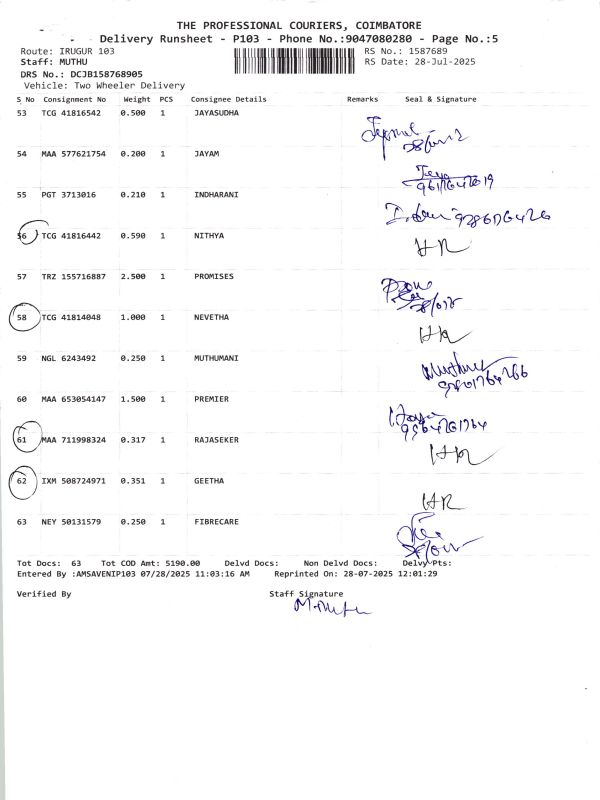 THE PROFESSIONAL COURIERS, COIMBATORE
Delivery Runsheet - P103 - Phone No.:9047080280 - Page No.:5
Route: IRUGUR 103 RS No.: 1587689
Staff: MUTHU RS Date: 28-Jul-2025
DRS No.: DCJB158768905
Vehicle: Two Wheeler Delivery
S No Consignment No Weight PCS Consignee Details Remarks Seal & Signature
53 TCG 41816542 0.500 1 JAYASUDHA
54 MAA 577621754 0.200 1 JAYAM
55 PGT 3713016 0.210 1 INDHARANI
56 TCG 41816442 0.590 1 NITHYA HR
57 TRZ 155716887 2.500 1 PROMISES
58 TCG 41814048 1.000 1 NEVETHA HR
59 NGL 6243492 0.250 1 MUTHUMANI
60 MAA 653054147 1.500 1 PREMIER
61 MAA 711998324 0.317 1 RAJASEKER HR
62 IXM 508724971 0.351 1 GEETHA HR
63 NEY 50131579 0.250 1 FIBRECARE
Tot Docs: 63 Tot COD Amt: 5190.00 Delvd Docs: Non Delvd Docs: Delvy Pts:
Entered By :AMSAVENIP103 07/28/2025 11:03:16 AM Reprinted On: 28-07-2025 12:01:29
Verified By Staff Signature